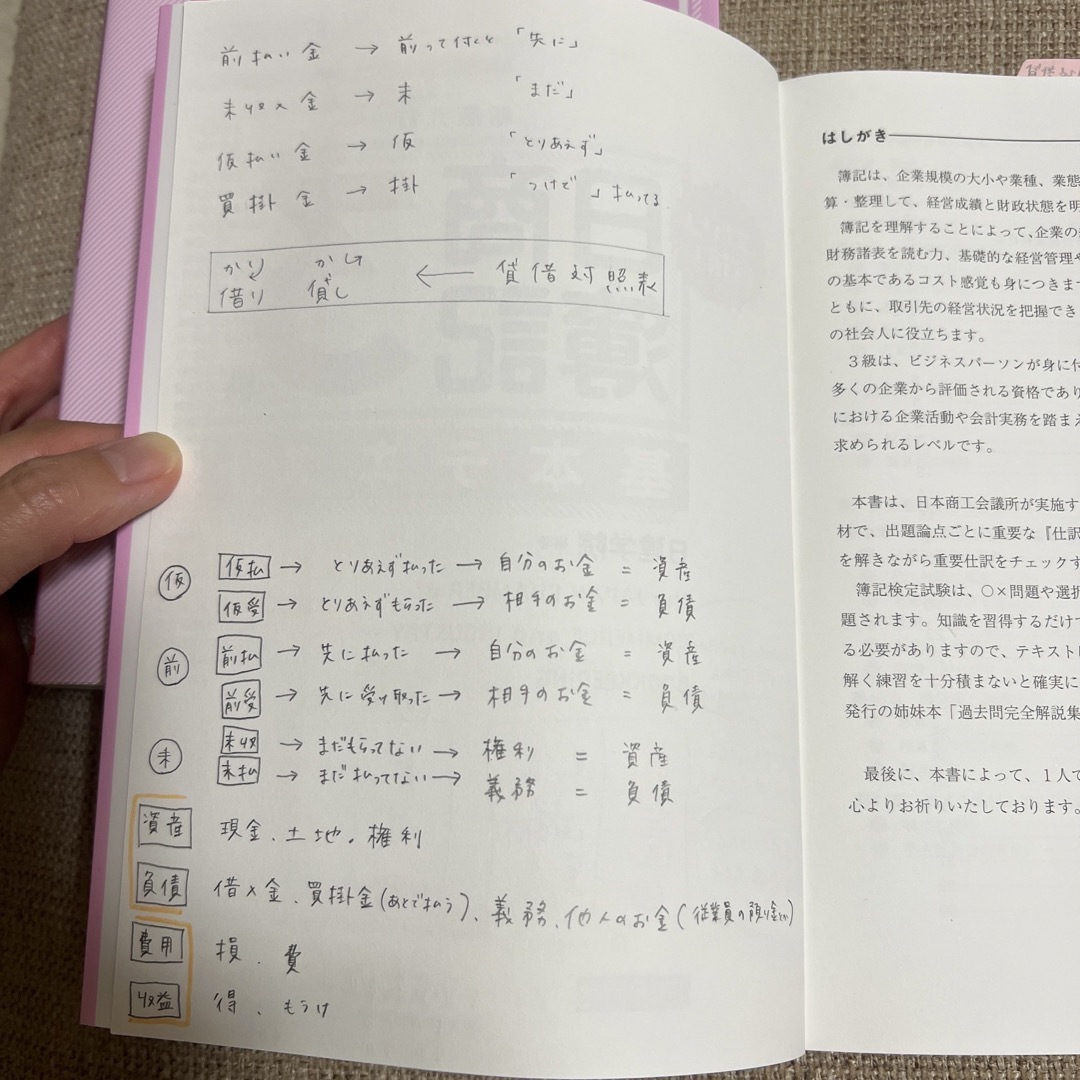 前払い金 → 前って付くと「先に」
未収入金 → 未 「まだ」
仮払い金 → 仮 「とりあえず」
買掛金 → 掛 「つけで」払ってる
かり かし
借り 貸し ← 貸借対照表
仮
仮払 → とりあえず払った → 自分のお金 = 資産
仮受 → とりあえずもらった → 相手のお金 = 負債
前
前払 → 先に払った → 自分のお金 = 資産
前受 → 先に受け取った → 相手のお金 = 負債
未
未収 → まだもらってない → 権利 = 資産
未払 → まだ払ってない → 義務 = 負債
資産 現金、土地。権利
負債 借入金、買掛金(あとで払う)、義務、他人のお金(従業員の預り金とか)
費用 損、費
収益 得、もうけ
はしがき
簿記は、企業規模の大小や業種、業態
算・整理して、経営成績と財政状態を明
簿記を理解することによって、企業の
財務諸表を読む力、基礎的な経営管理や
の基本であるコスト感覚も身につきます
ともに、取引先の経営状況を把握でき
の社会人に役立ちます。
3級は、ビジネスパーソンが身に付
多くの企業から評価される資格であり
における企業活動や会計実務を踏まえ
求められるレベルです。
本書は、日本商工会議所が実施す
材で、出題論点ごとに重要な『仕訳
を解きながら重要仕訳をチェックす
簿記検定試験は、○×問題や選択
題されます。知識を習得するだけで
る必要がありますので、テキスト
解く練習を十分積まないと確実に
発行の姉妹本「過去問完全解説集
最後に、本書によって、1人で
心よりお祈りいたしております。